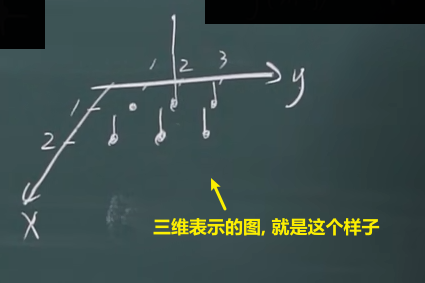 1 2 3
y
1
2
X
三维表示的图, 就是这个样子